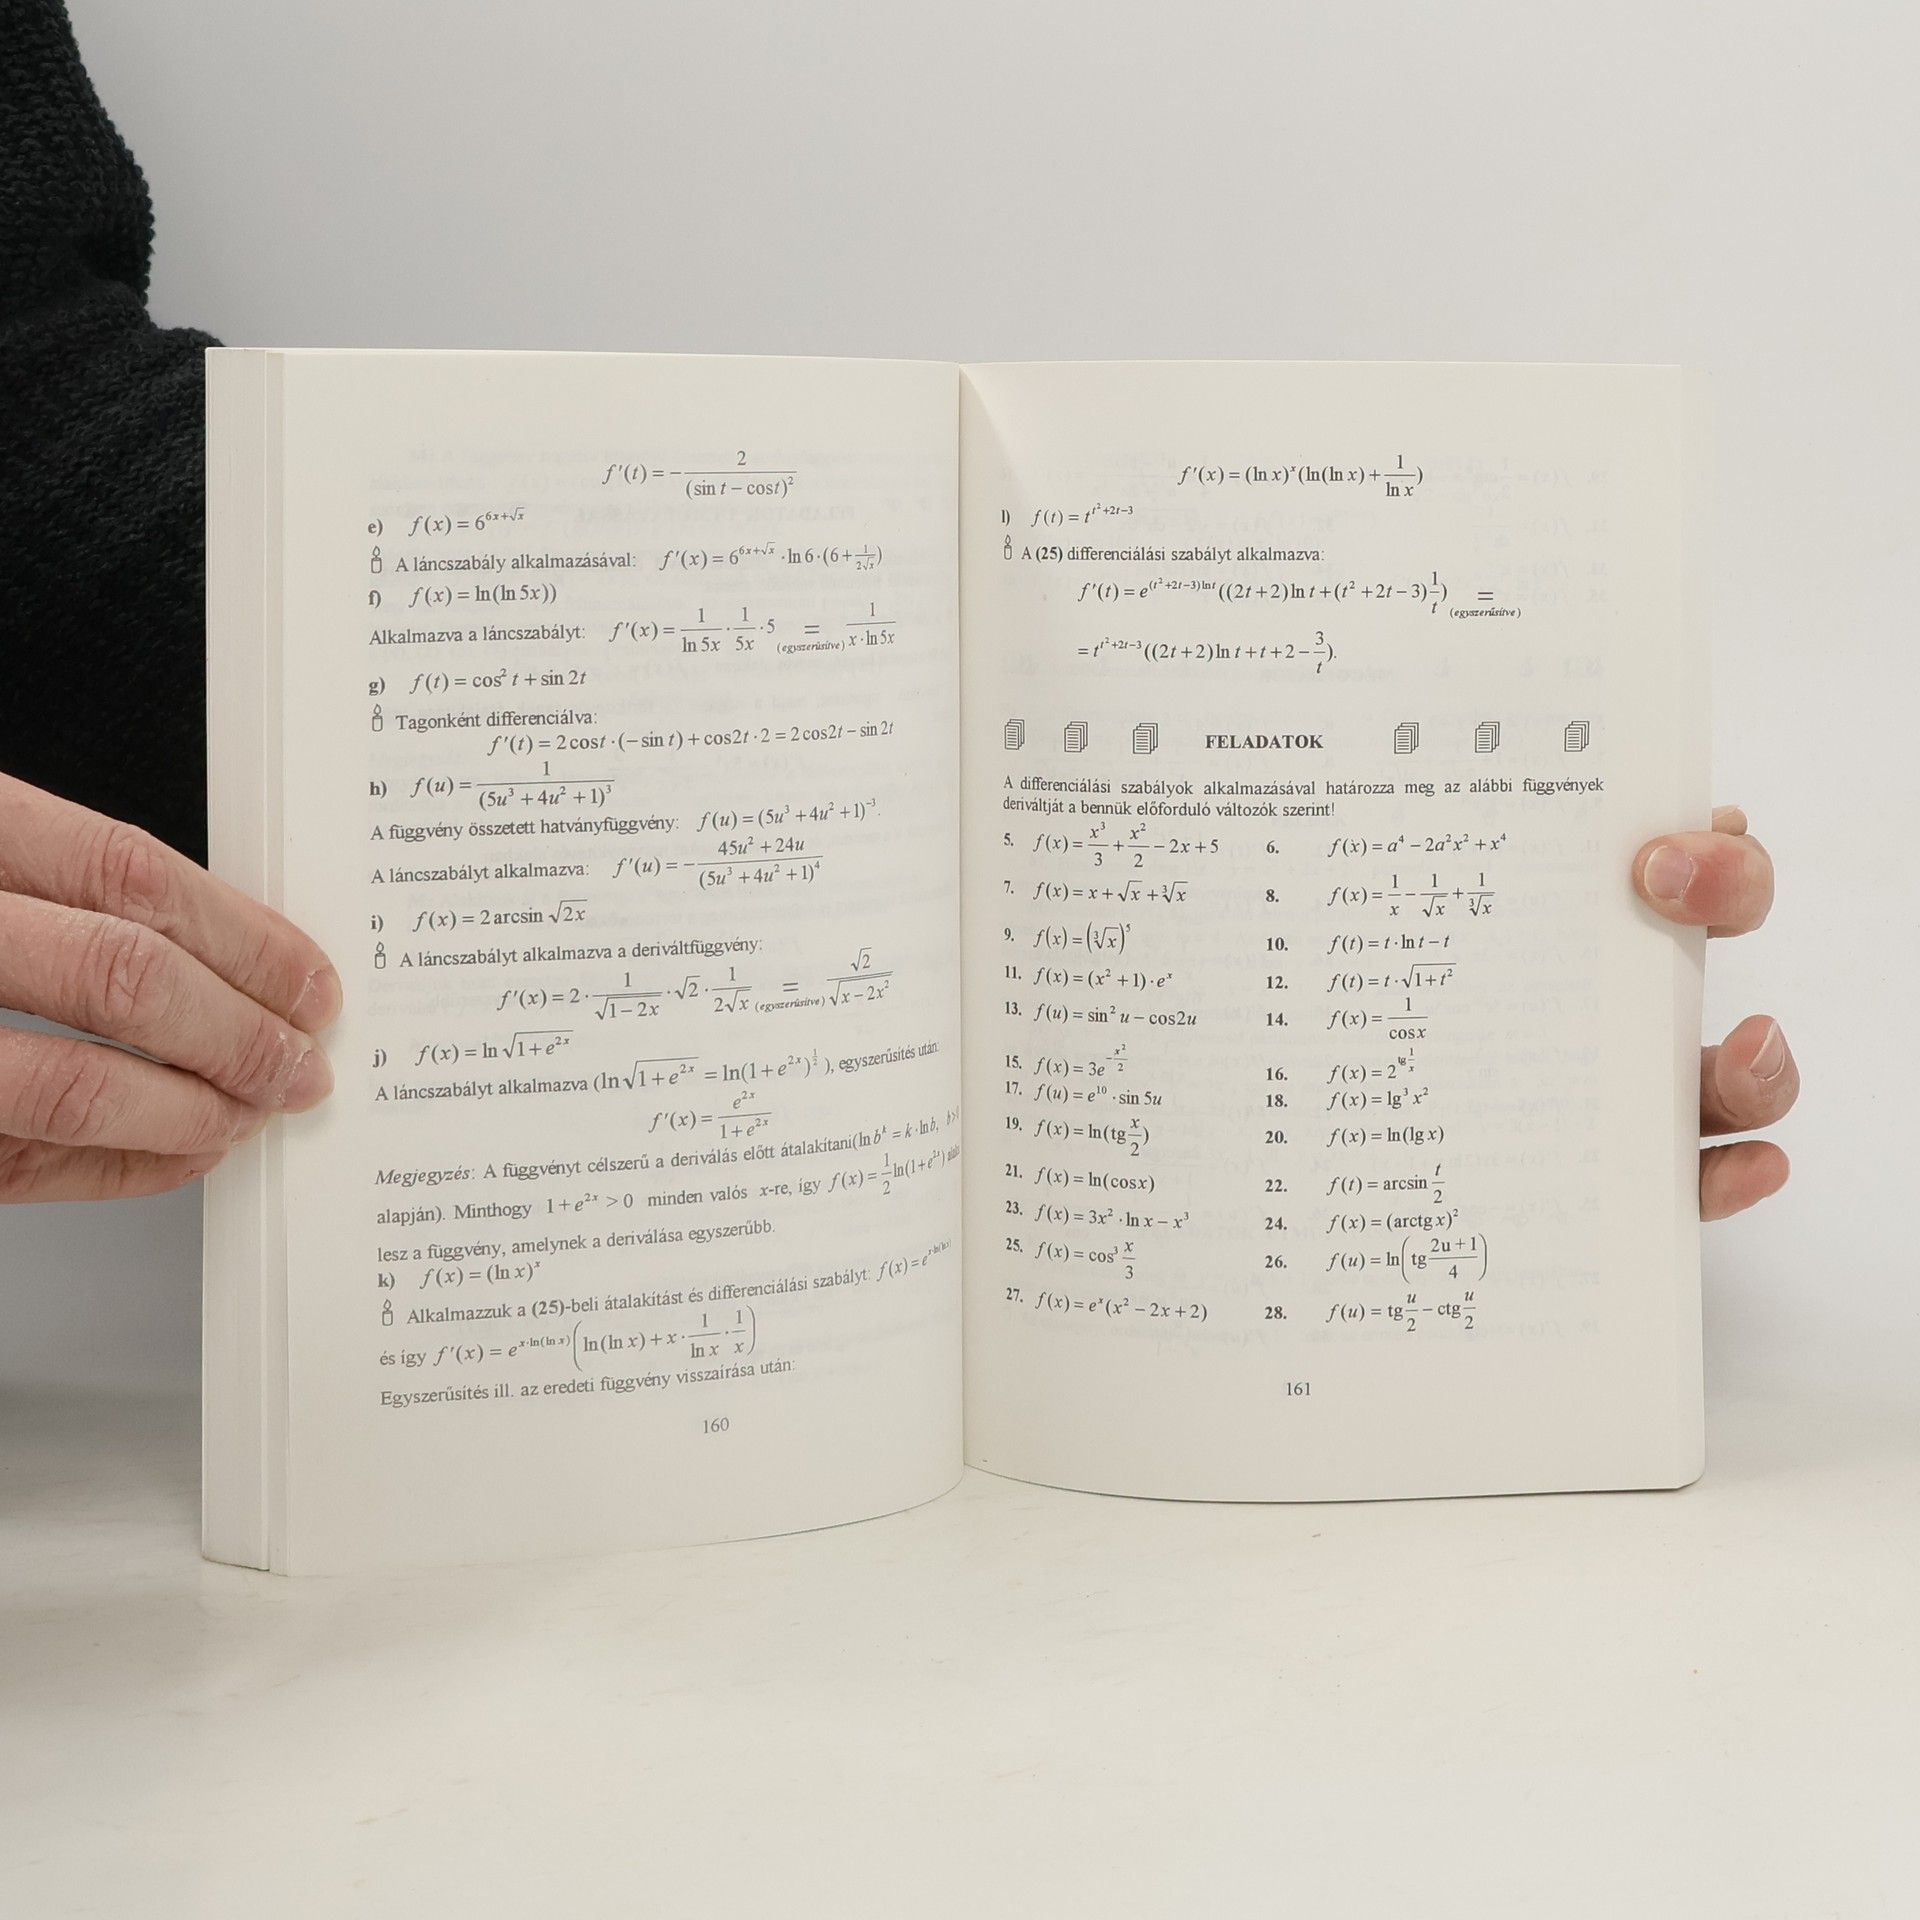 f'(t) = -2/(sin t - cost)²
e) f(x) = 6^(6x+√x)
A láncszabály alkalmazásával: f'(x) = 6^(6x+√x) · ln 6 · (6 + 1/(2√x))
f) f(x) = ln(ln 5x))
Alkalmazva a láncszabályt: f'(x) = 1/(ln 5x) · 1/(5x) · 5 = (egyszerűsítve) 1/(x · ln 5x)
g) f(t) = cos² t + sin 2t
Tagonként differenciálva:
f'(t) = 2cost · (-sin t) + cos2t · 2 = 2cos2t - sin 2t
h) f(u) = 1/(5u³ + 4u² + 1)³
A függvény összetett hatványfüggvény: f(u) = (5u³ + 4u² + 1)⁻³.
A láncszabályt alkalmazva: f'(u) = -(45u² + 24u)/(5u³ + 4u² + 1)⁴
i) f(x) = 2arcsin √(2x)
A láncszabályt alkalmazva a deriváltfüggvény:
f'(x) = 2 · 1/√(1-2x) · √2 · 1/(2√x) = (egyszerűsítve) √2/√(x-2x²)
j) f(x) = ln √(1+e^(2x))
A láncszabályt alkalmazva (ln √(1+e^(2x)) = ln(1+e^(2x))^(1/2)), egyszerűsítés után:
f'(x) = e^(2x)/(1+e^(2x))
Megjegyzés: A függvényt célszerű a deriválás előtt átalakítani(ln b^k = k · ln b, b>
alapján). Minthogy 1+e^(2x) > 0 minden valós x-re, így f(x) = 1/2 ln(1+e^(2x))
lesz a függvény, amelynek a deriválása egyszerűbb.
k) f(x) = (ln x)^x
Alkalmazzuk a (25)-beli átalakítást és differenciálási szabályt: f(x) = e^(x·ln(ln x))
és így f'(x) = e^(x·ln(ln x)) (ln(ln x) + x · 1/(ln x) · 1/x)
Egyszerűsítés ill. az eredeti függvény visszaírása után:
160
f'(x) = (ln x)^x (ln(ln x) + 1/(ln x))
l) f(t) = t^(t²+2t-3)
A (25) differenciálási szabályt alkalmazva:
f'(t) = e^((t²+2t-3)ln t) ((2t+2)ln t + (t² + 2t - 3) 1/t) = (egyszerűsítve)
= t^(t²+2t-3) ((2t+2)ln t + t + 2 - 3/t).
FELADATOK
A differenciálási szabályok alkalmazásával határozza meg az alábbi függvények
deriváltját a bennük előforduló változók szerint!
5. f(x) = x³/3 + x²/2 - 2x + 5 6. f(x) = a⁴ - 2a²x² + x⁴
7. f(x) = x + √x + ∛x 8. f(x) = 1/x - 1/√x + 1/∛x
9. f(x) = (∛x)⁵ 10. f(t) = t · ln t - t
11. f(x) = (x² + 1) · e^x 12. f(t) = t · √(1+t²)
13. f(u) = sin² u - cos2u 14. f(x) = 1/cosx
15. f(x) = 3e^(-x²/2) 16. f(x) = 2^(tg 1/x)
17. f(u) = e¹⁰ · sin 5u 18. f(x) = lg³ x²
19. f(x) = ln(tg x/2) 20. f(x) = ln(lg x)
21. f(x) = ln(cosx) 22. f(t) = arcsin t/2
23. f(x) = 3x² · ln x - x³ 24. f(x) = (arctg x)²
25. f(x) = cos³ x/3 26. f(u) = ln(tg (2u+1)/4)
27. f(x) = e^x(x² - 2x + 2) 28. f(u) = tg u/2 - ctg u/2
161